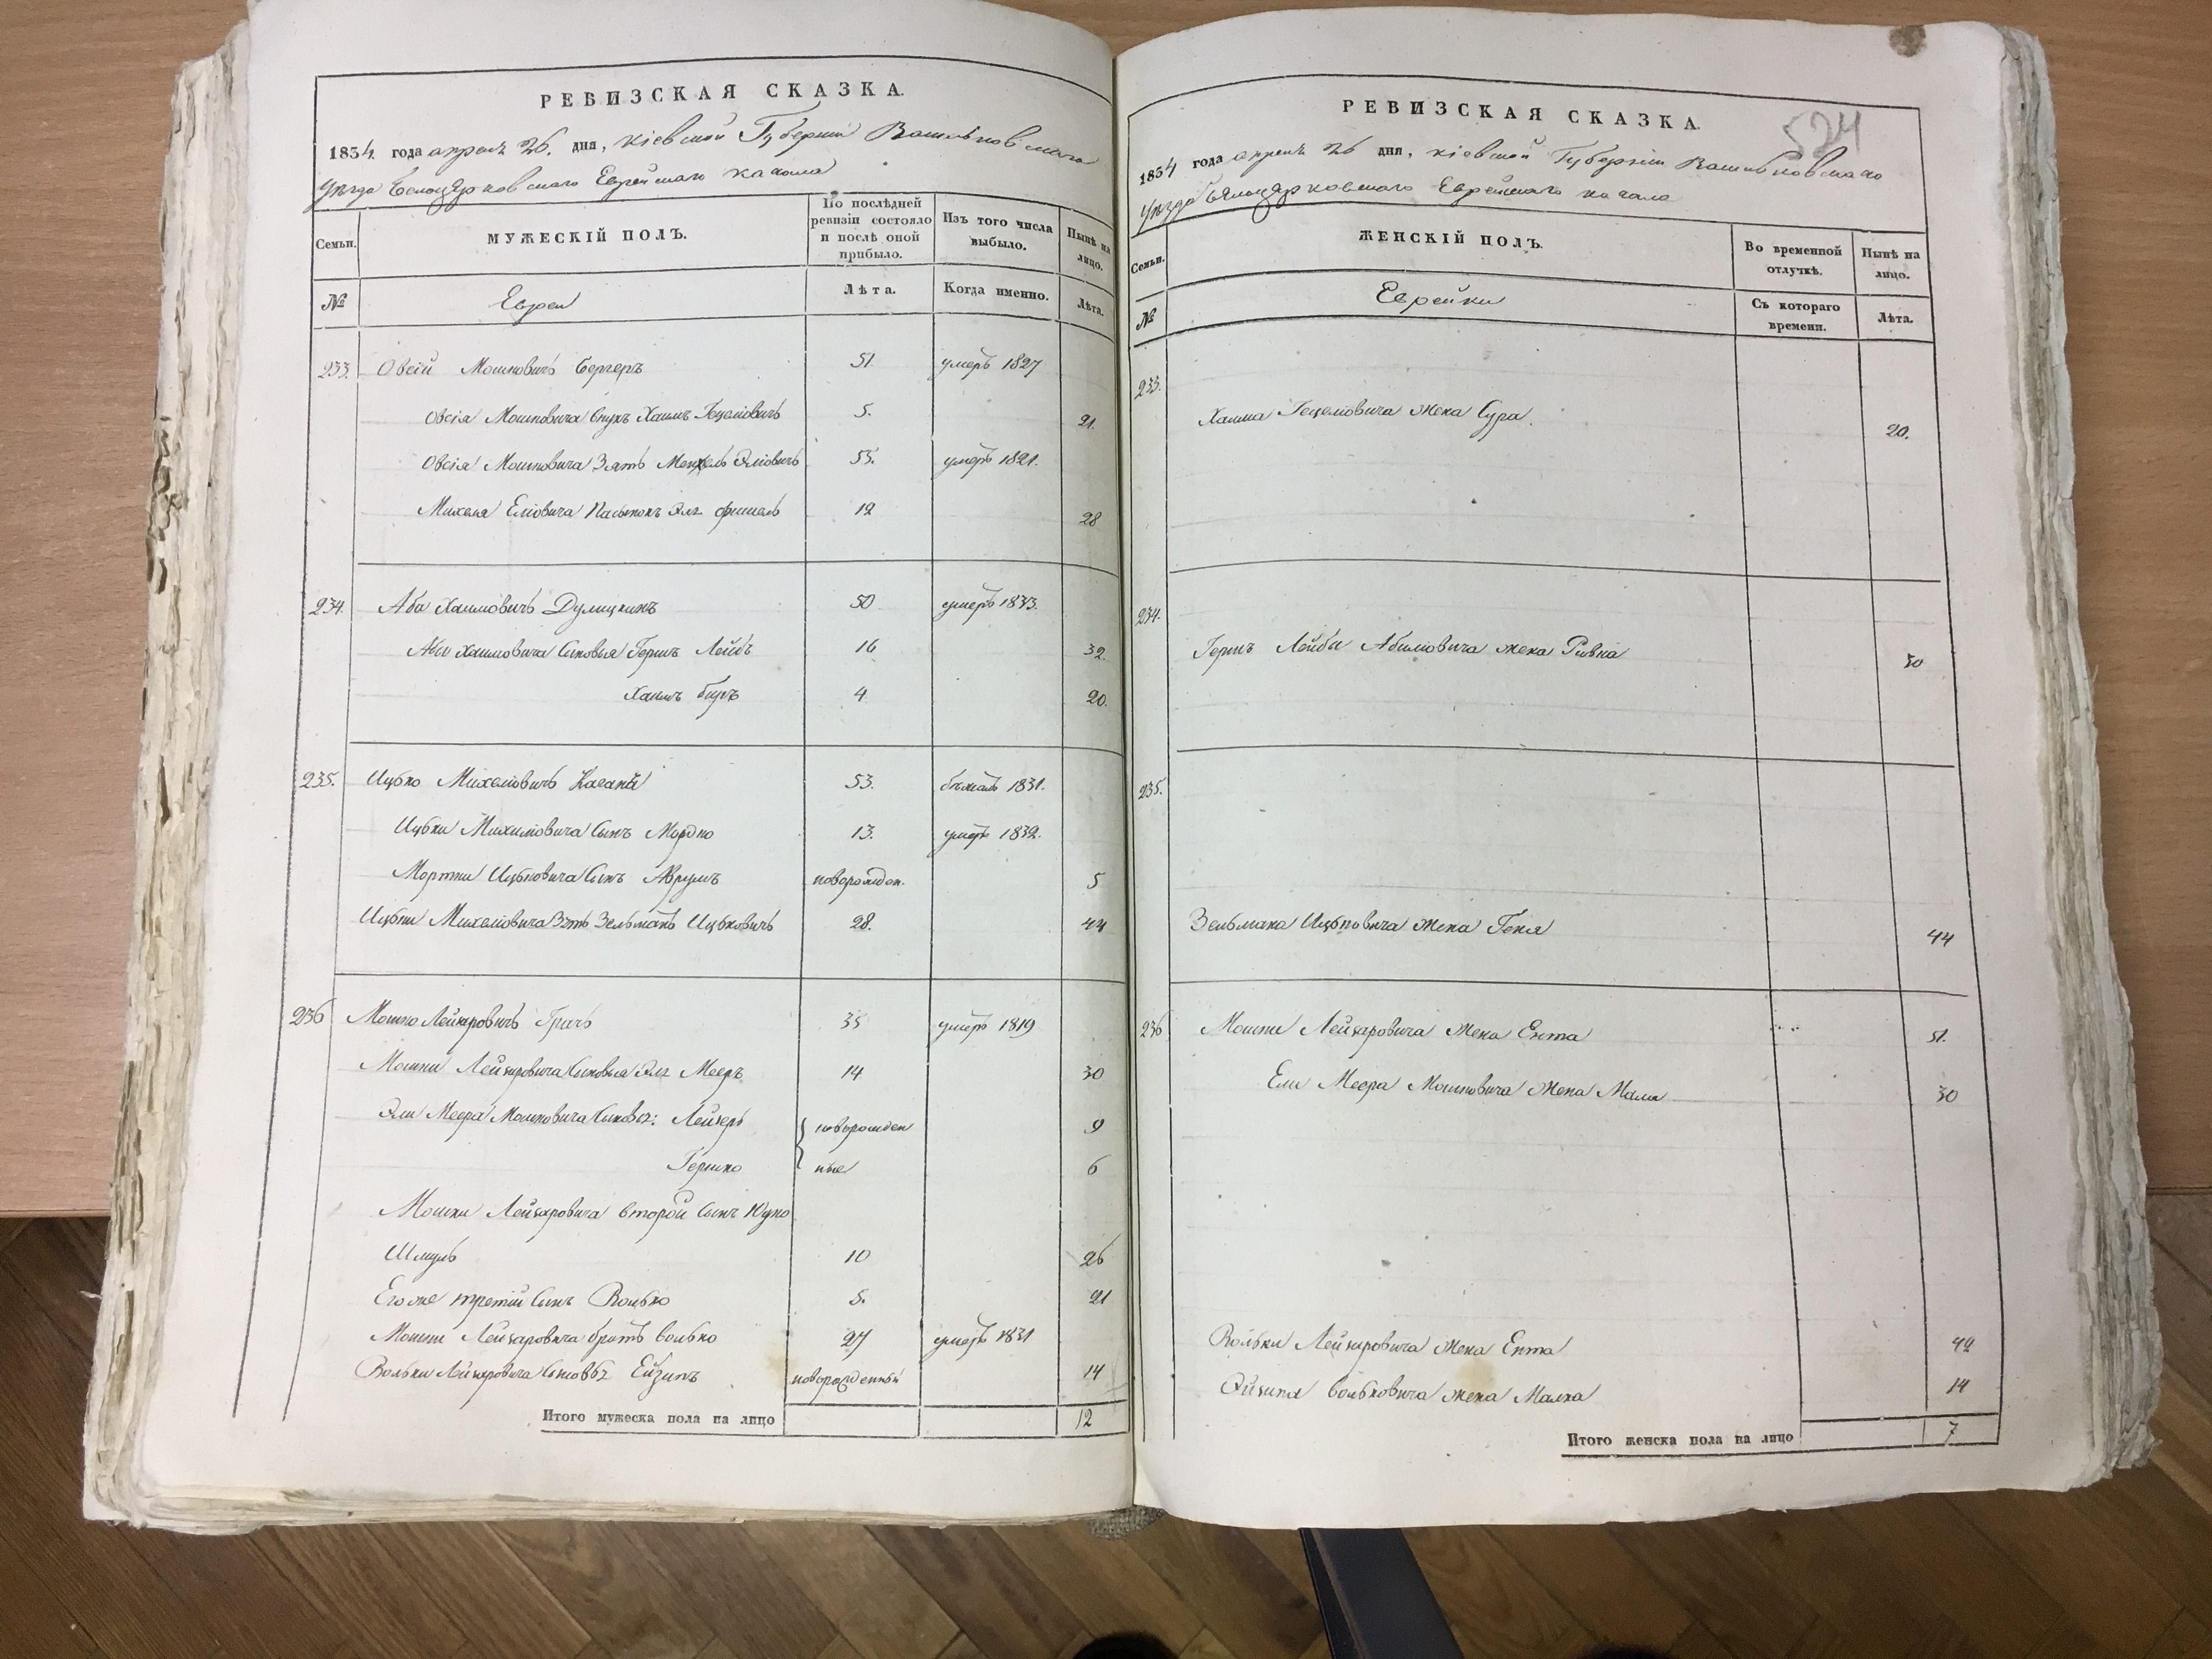 РЕВИЗСКАЯ СКАЗКА.
1834 года апреля 26. дня, Кіевской Губерніи Васильковскаго
уезда Белоцерковскаго Еврейскаго кагала
Семьи.
МУЖЕСКІЙ ПОЛЪ.
По послѣдней ревизіи состояло и послѣ оной прибыло.
Изъ того числа выбыло.
Нынѣ на лицо.
№
Евреи
Лѣта.
Когда именно.
Лѣта.
233. Овсій Мошковичъ Бергеръ 51. умеръ 1827
Овсія Мошковича внукъ Хаимъ Гецеліовичъ 5. 21.
Овсія Мошковича зять Эліовичъ 53. умеръ 1821.
Михеля Еліовича пасынокъ Эль Фишель 12 28
234. Аба Хаимовичъ 50 умеръ 1833.
Абы Хаимовича сыновья Гершъ Лейбъ 16 32.
Хаимъ Беръ 4 20.
235. Ицко Михеліовичъ 53. бежалъ 1831.
Ицки Михеліовича сынъ Мордко 13. умеръ 1832.
Мортки Ицковича сынъ Аврумъ новорожден. 5
Ицки Михеліовича зять Зельманъ Ицковичъ 28. 44
236 Мошко Лейзеровичъ Грачъ 35 умеръ 1819
Мошки Лейзеровича сыновья Эль Мееръ 14 30
Эли Меера Мошковича сыновья: Лейзеръ новорожден 9
Гершко ные 6
Мошки Лейзеровича второй сынъ Юдко
Шмуль 10 26
Его же третій сынъ Волько 5. 21
Мошки Лейзеровича братъ Волько 27 умеръ 1831
Вольки Лейзеровича сыновья Ейзикъ новорожденный 14
Итого мужеска пола на лицо 12
524
РЕВИЗСКАЯ СКАЗКА.
1834 года апреля 26 дня, Кіевской Губерніи Васильковскаго
уезда Белоцерковскаго Еврейскаго кагала
Семьи.
ЖЕНСКІЙ ПОЛЪ.
Во временной отлучкѣ.
Нынѣ на лицо.
№
Еврейки
Съ котораго времени.
Лѣта.
233.
Хаима Гецеліовича жена Сура. 20.
234.
Гершъ Лейбы Абеліовича жена Ривка 30
235.
Зельмана Ицковича жена Геня 44
236. Мошки Лейзеровича жена Ента 51.
Ели Меера Мошковича жена Маля 30
Вольки Лейзеровича жена Ента 42
Эйзика Вольковича жена Малка 14
Итого женска пола на лицо 7